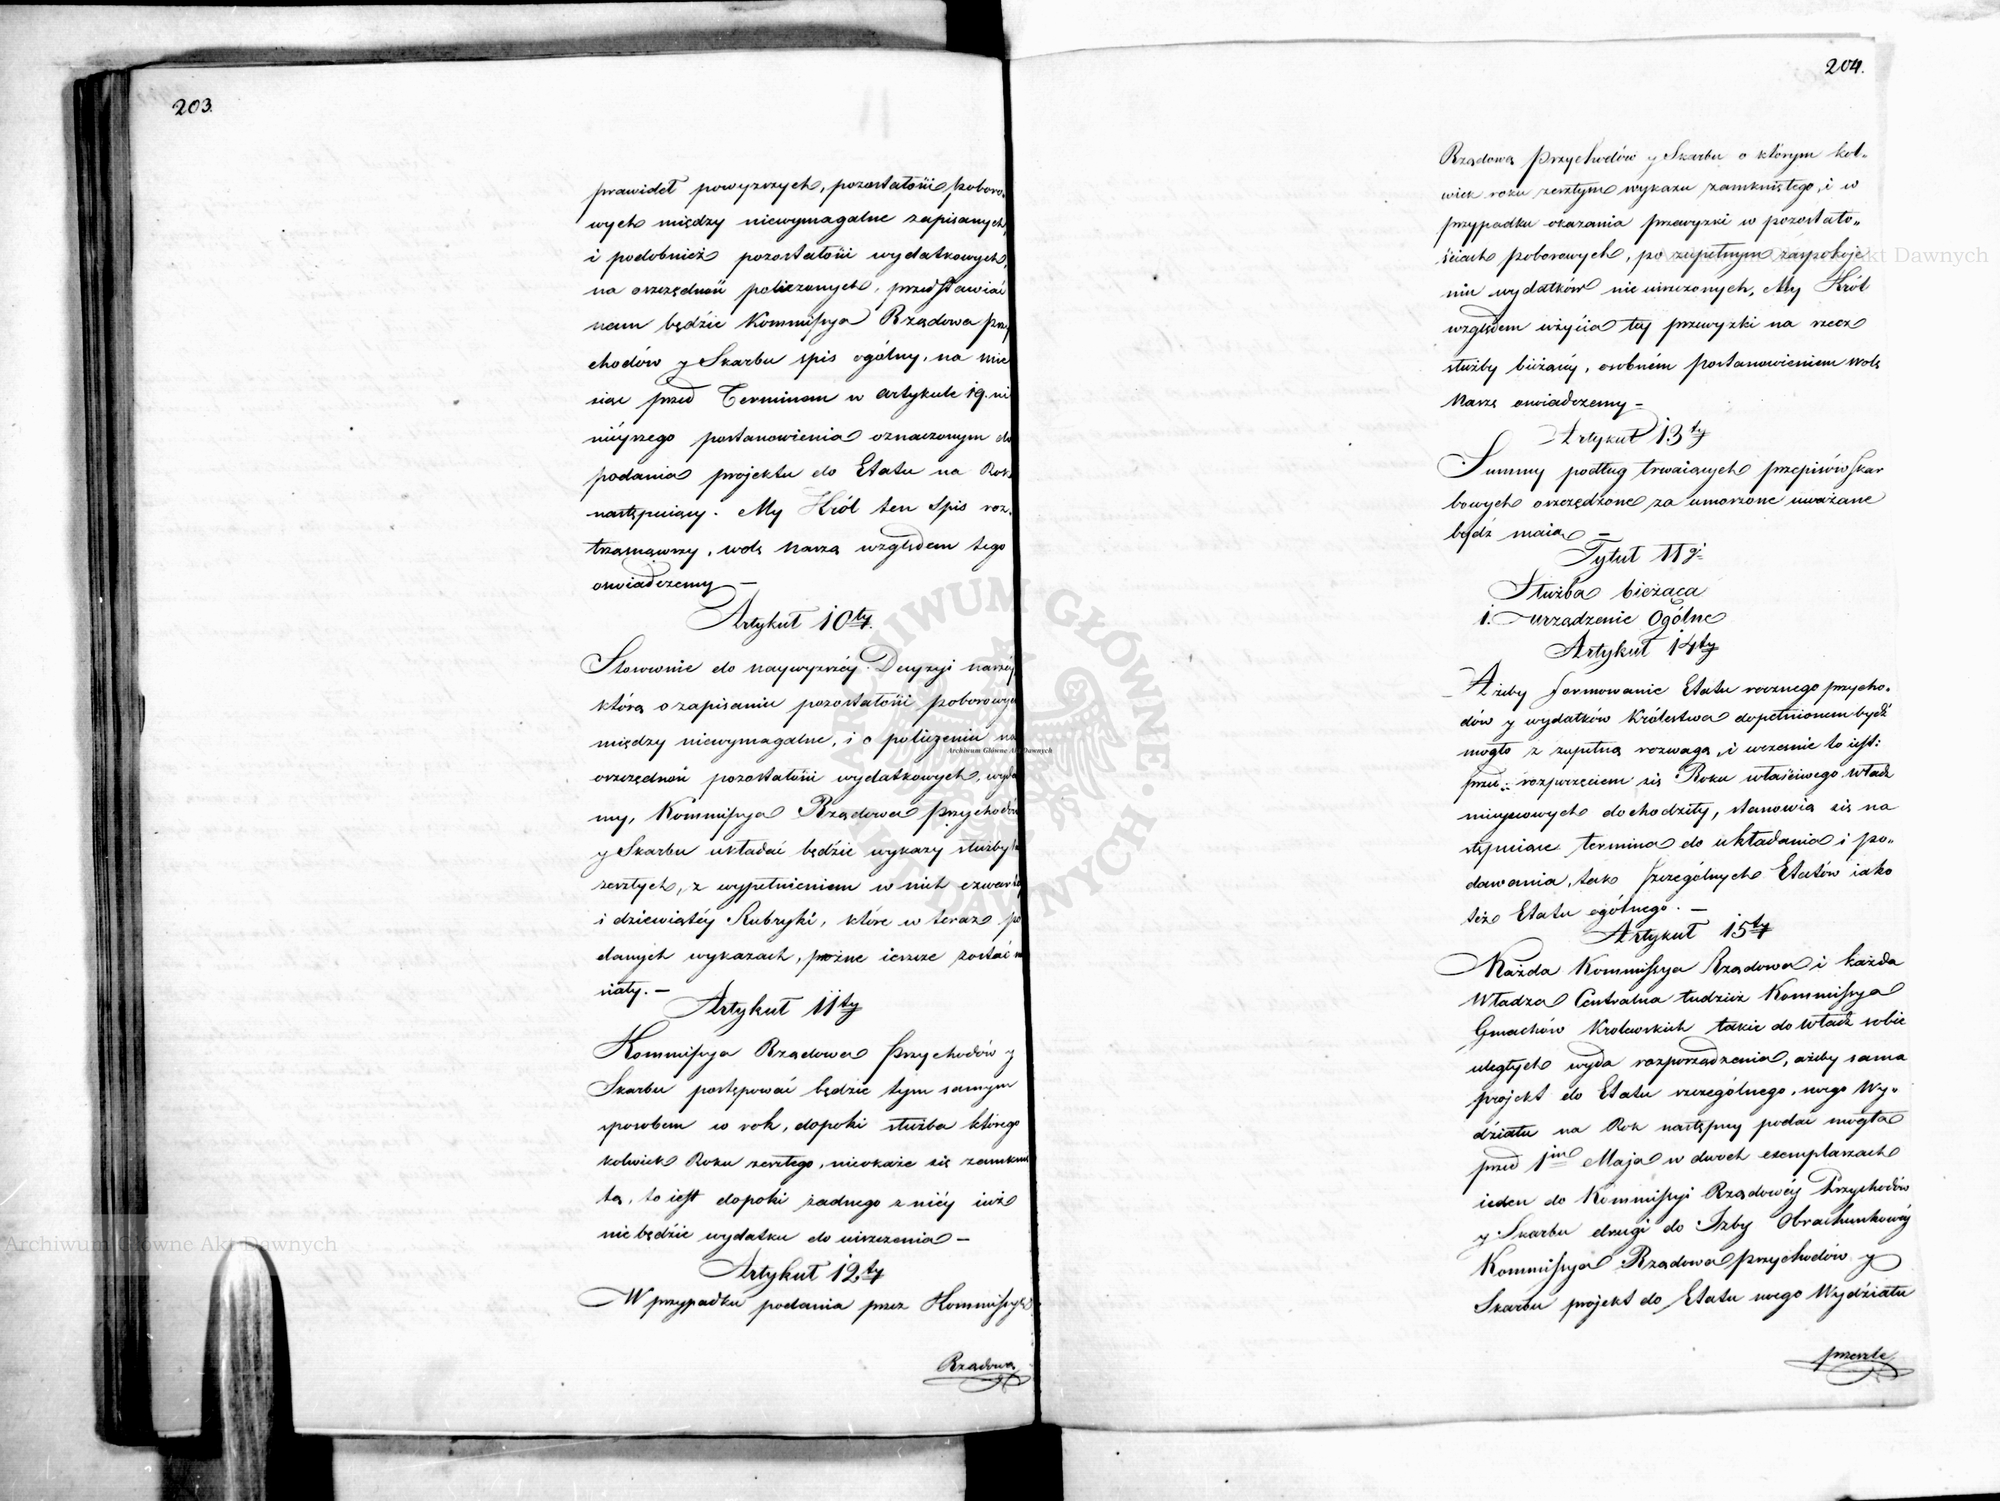 203.
prawideł powyższych, pozostałości poboro„
wych między niewymagalne zapisanych,
i podobnież pozostałości wydatkowych,
na oszczędność policzonych, przedstawiać
nam będzie Kommissya Rządowa przy
chodów y Skarbu spis ogólny, na mie
siąc przed Terminem w artykule 19. ni
niéyszego postanowienia oznaczonym do
podania projektu do Etatu na Rok
następuiący. My Król ten Spis roz„
trząsnąwszy, wolę naszą względem tego
oświadczemy —
Artykuł 10ty.
Stosownie do naywyższéy Decyzyi naszéy
którą o zapisaniu pozostałości poborowych
między niewymagalne, i o policzeniu na
oszczędność pozostałości wydatkowych, wyda
my, Kommissya Rządowa Przychodów
y Skarbu układać będzie wykazy służby lat
zeszłych, z wypełnieniem w nich czwartéy
i dziewiątéy Rubryki, które w teraz po
danych wykazach, próżne ieszcze zostać m
siały. —
Artykuł 11ty
Kommissya Rządowa Przychodów y
Skarbu postępować będzie tym samym
sposobem co rok, dopóki służba którego
kolwiek Roku zeszłego, nieokaże się zamknię
tą, to iest dopóki żadnego z niéy iuż
nie będzie wydatku do uiszczenia —
Artykuł 12ty
W przypadku podania przez Kommissyę
Rządową
204.
Rządową Przychodów y Skarbu o którym kol„
wiek roku zeszłym wykazu zamkniętego, i w
przypadku okazania przewyżki w pozostało„
ściach poborowych, po zupełnym zaspokoje
niu wydatków nieuiszczonych, My Król
względem użycia téy przewyżki na rzecz
służby bieżącéy, osobném postanowieniem wolę
Naszą oświadczemy —
Artykuł 13ty
Summy podług trwaiących przepisów Skar
bowych oszczędzone za umorzone uważane
bydź maią —
Tytuł IIgi
Służba bieżąca
1. urządzenie Ogólne
Artykuł 14ty
Ażeby formowanie Etatu rocznego przycho„
dów y wydatków Królestwa dopełnionem bydź
mogło z zupełną rozwagą, i wcześnie to iest:
przed rozpoczęciem się Roku właściwego władz
mieyscowych dochodziły, stanowią się na
stępuiące termina do układania i po„
dawania, tak szczególnych Etatów iako
też Etatu ogólnego. —
Artykuł 15ty
Każda Kommissya Rządowa i każda
Władza Centralna tudzież Kommissya
Gmachów Krolewskich takie do Władz sobie
uległych wyda rozporządzenia, ażeby sama
projekt do Etatu szczególnego, swego Wy„
działu na Rok następny podać mogła
przed 1m Maja w dwóch exemplarzach
ieden do Kommissyi Rządowéy Przychodów
y Skarbu drugi do Izby Obrachunkowéy
Kommissya Rządowa przychodów y
Skarbu projekt do Etatu swego Wydziału
prześle
Archiwum Główne Akt Dawnych
Archiwum Główne Akt Dawnych
Archiwum Główne Akt Dawnych
ARCHIWUM GŁÓWNE AKT DAWNYCH